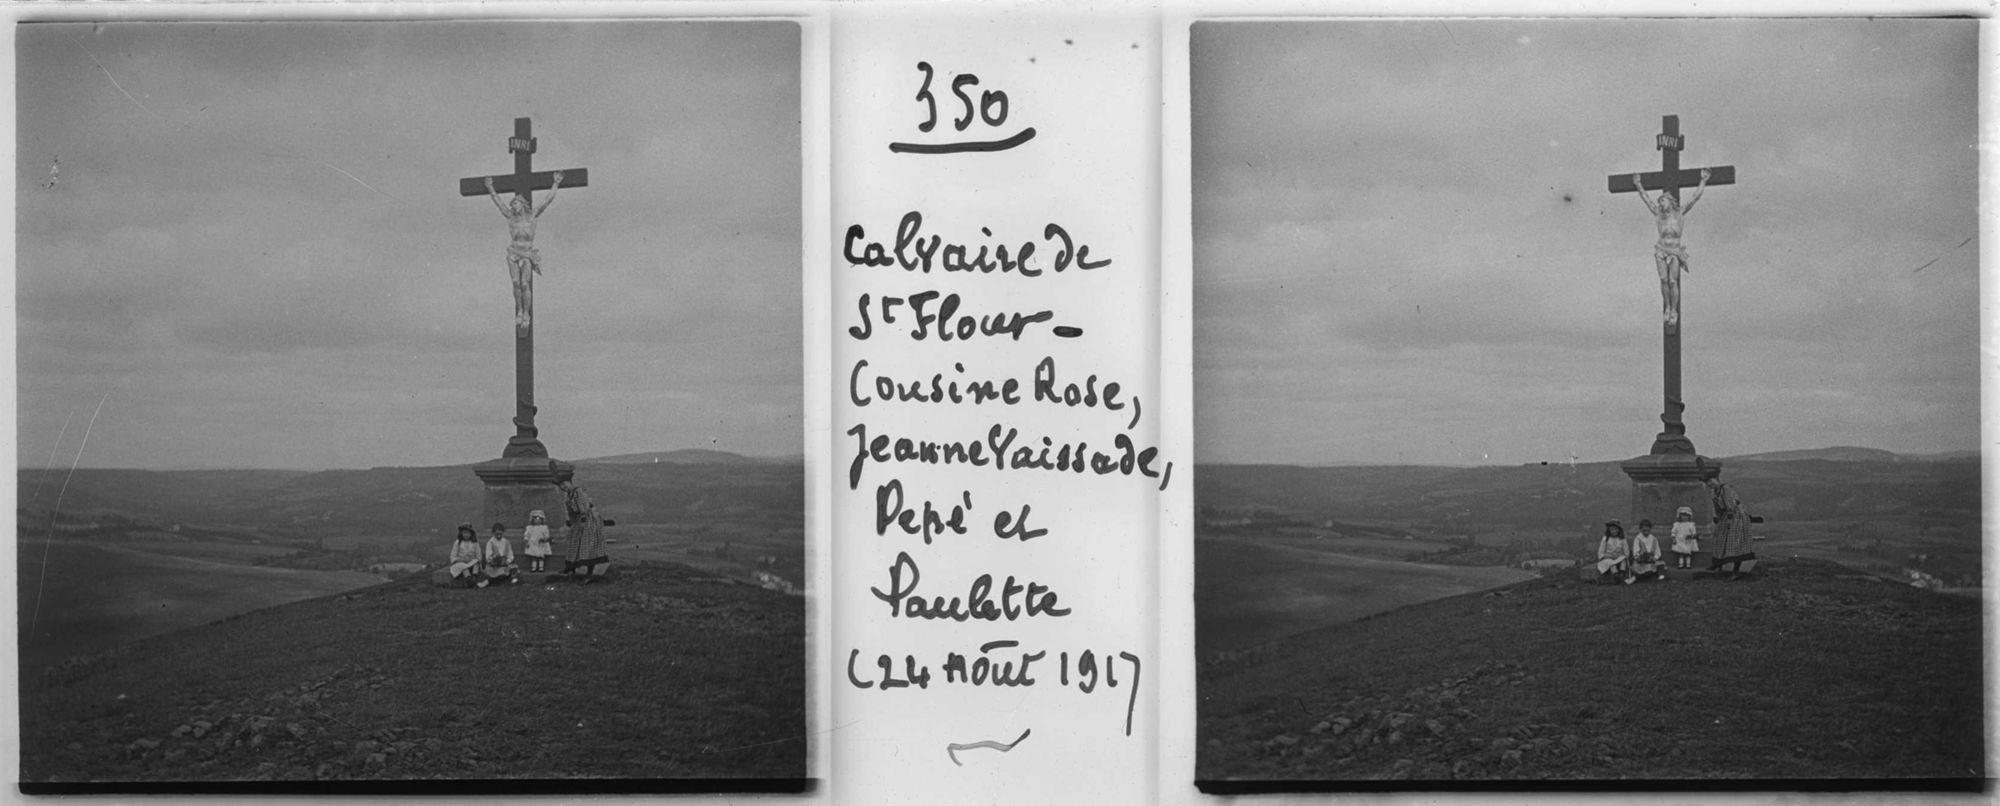 INRI
350
Calvaire de
St Flour -
Cousine Rose,
Jeanne Vaissade,
Pepé et
Paulette
(24 Août 1917
INRI